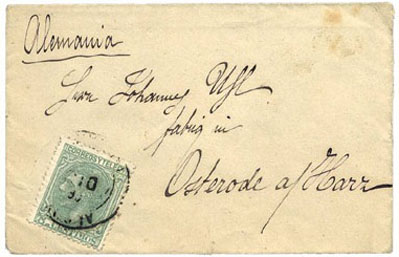 Alemania
Herr Johannes Uhl
fabrig in
Osterode a/Harz
CORREOS Y TELEG
5 CENTIMOS